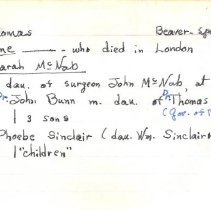 omas Beaver-Sp
ne — who died in London
arah McNab
dau. of surgeon John McNab, at
Dr. John Bunn m. dau. of Dr. Thomas
(gov. of
3 sons
Phoebe Sinclair (dau. Wm. Sinclair
"children"